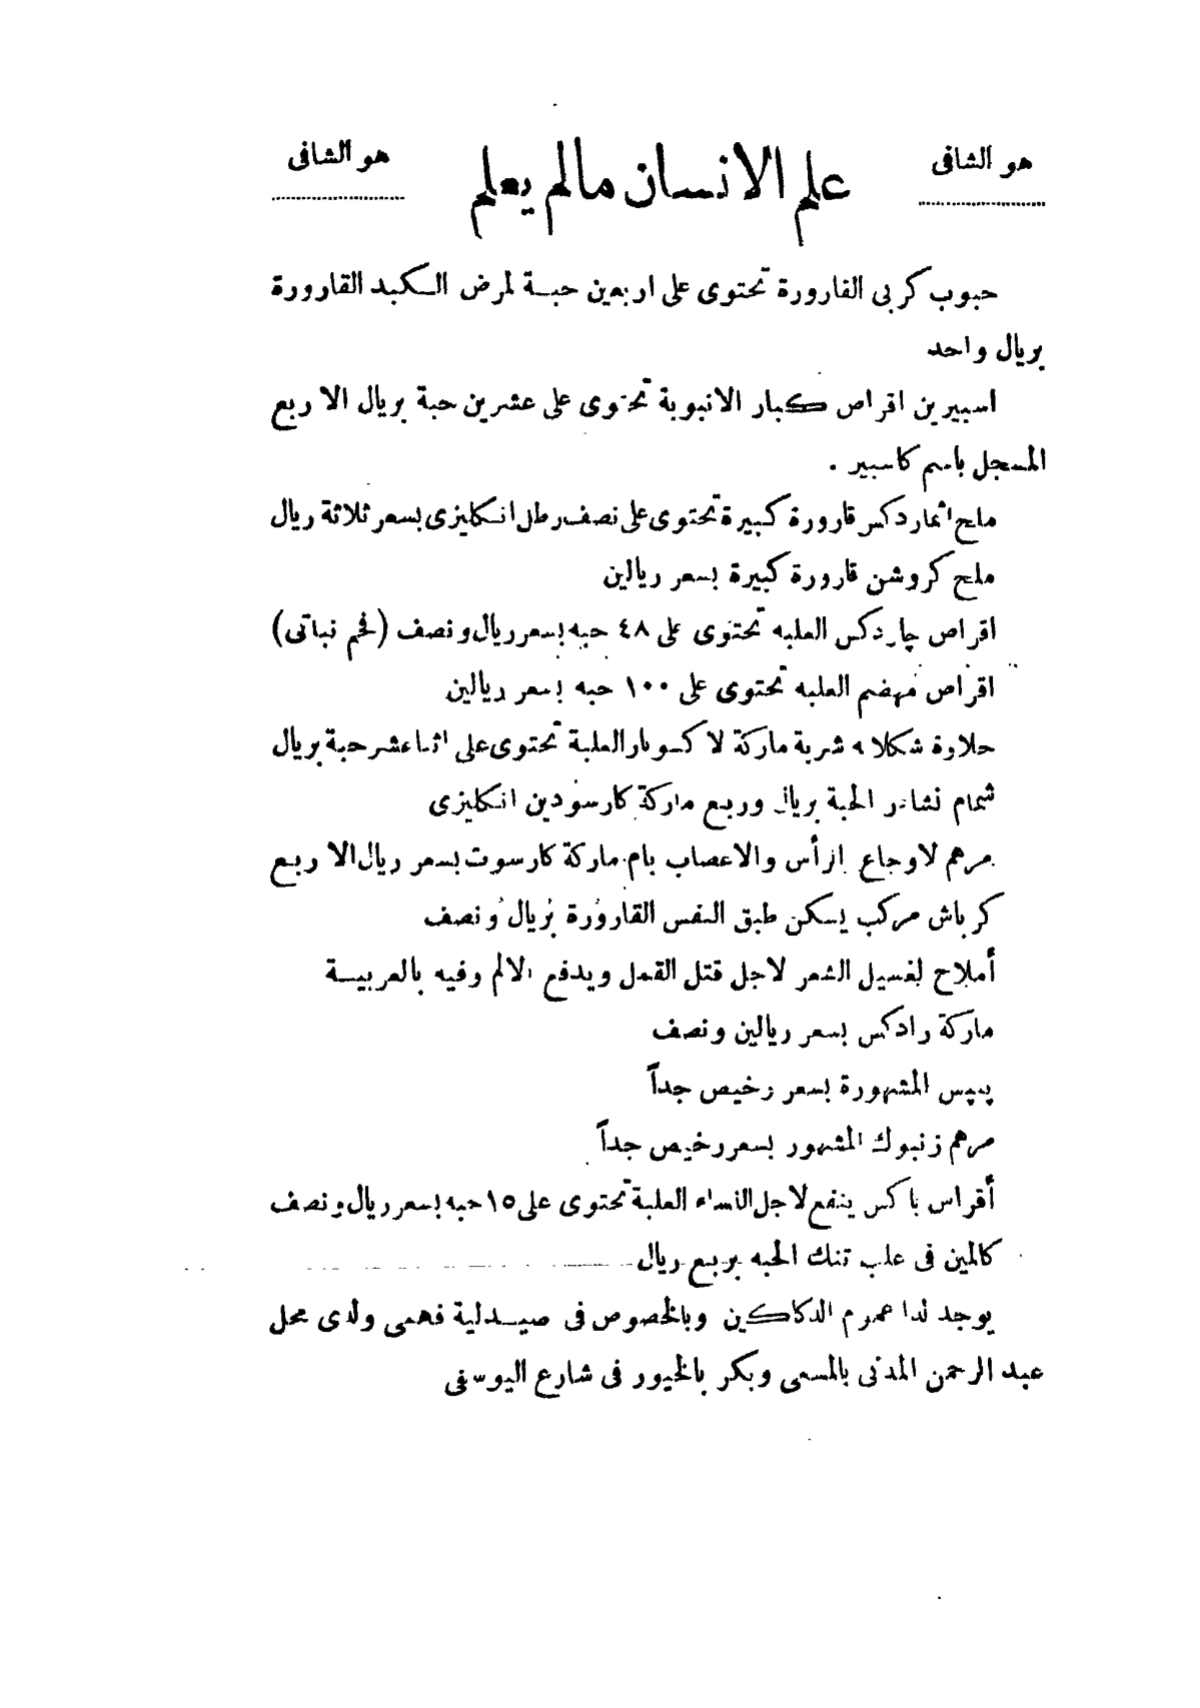 هو الشافى
علم الانسان مالم يعلم
هو الشافى
حبوب كربى القارورة تحتوى على اربعين حبة لمرض الكبد القارورة
بريال واحد
اسبيرين اقراص كبار الانبوبة تحتوى على عشرين حبة بريال الا ربع
المسجل باسم كاسبير .
ملح اثمار دكس قارورة كبيرة تحتوى على نصف رطل انكليزى بسعر ثلاثة ريال
ملح كروشن قارورة كبيرة بسعر ريالين
اقراص چاردكس العلبه تحتوى على ٤٨ حبه بسعر ريال ونصف (فحم نباتى)
اقراص مهضم العلبه تحتوى على ١٠٠ حبه بسعر ريالين
حلاوة شكلاته شربة ماركة لاكسوبار العلبة تحتوى على اثناعشر حبة بريال
شمام نشادر الحبة بريال وربع ماركة كارسودين انكليزى
مرهم لاوجاع الرأس والاعصاب بام ماركة كارسوت بسعر ريال الا ربع
كرباش مركب يسكن طبق النفس القارورة بريال ونصف
أملاح لغسيل الشعر لاجل قتل القمل ويدفع الالم وفيه بالعربية
ماركة رادكس بسعر ريالين ونصف
پيپس المشهورة بسعر رخيص جداً
مرهم زنبوك المشهور بسعر رخيص جداً
أقراس باكس ينفع لاجل النساء العلبة تحتوى على ١٥ حبه بسعر ريال ونصف
كالمين فى علب تنك الحبه بربع ريال
يوجد لدا عموم الدكاكين وبالخصوص فى صيدلية فهمى ولدى محل
عبد الرحمن المدنى بالمسعى وبكر بالخيور فى شارع اليوسفى